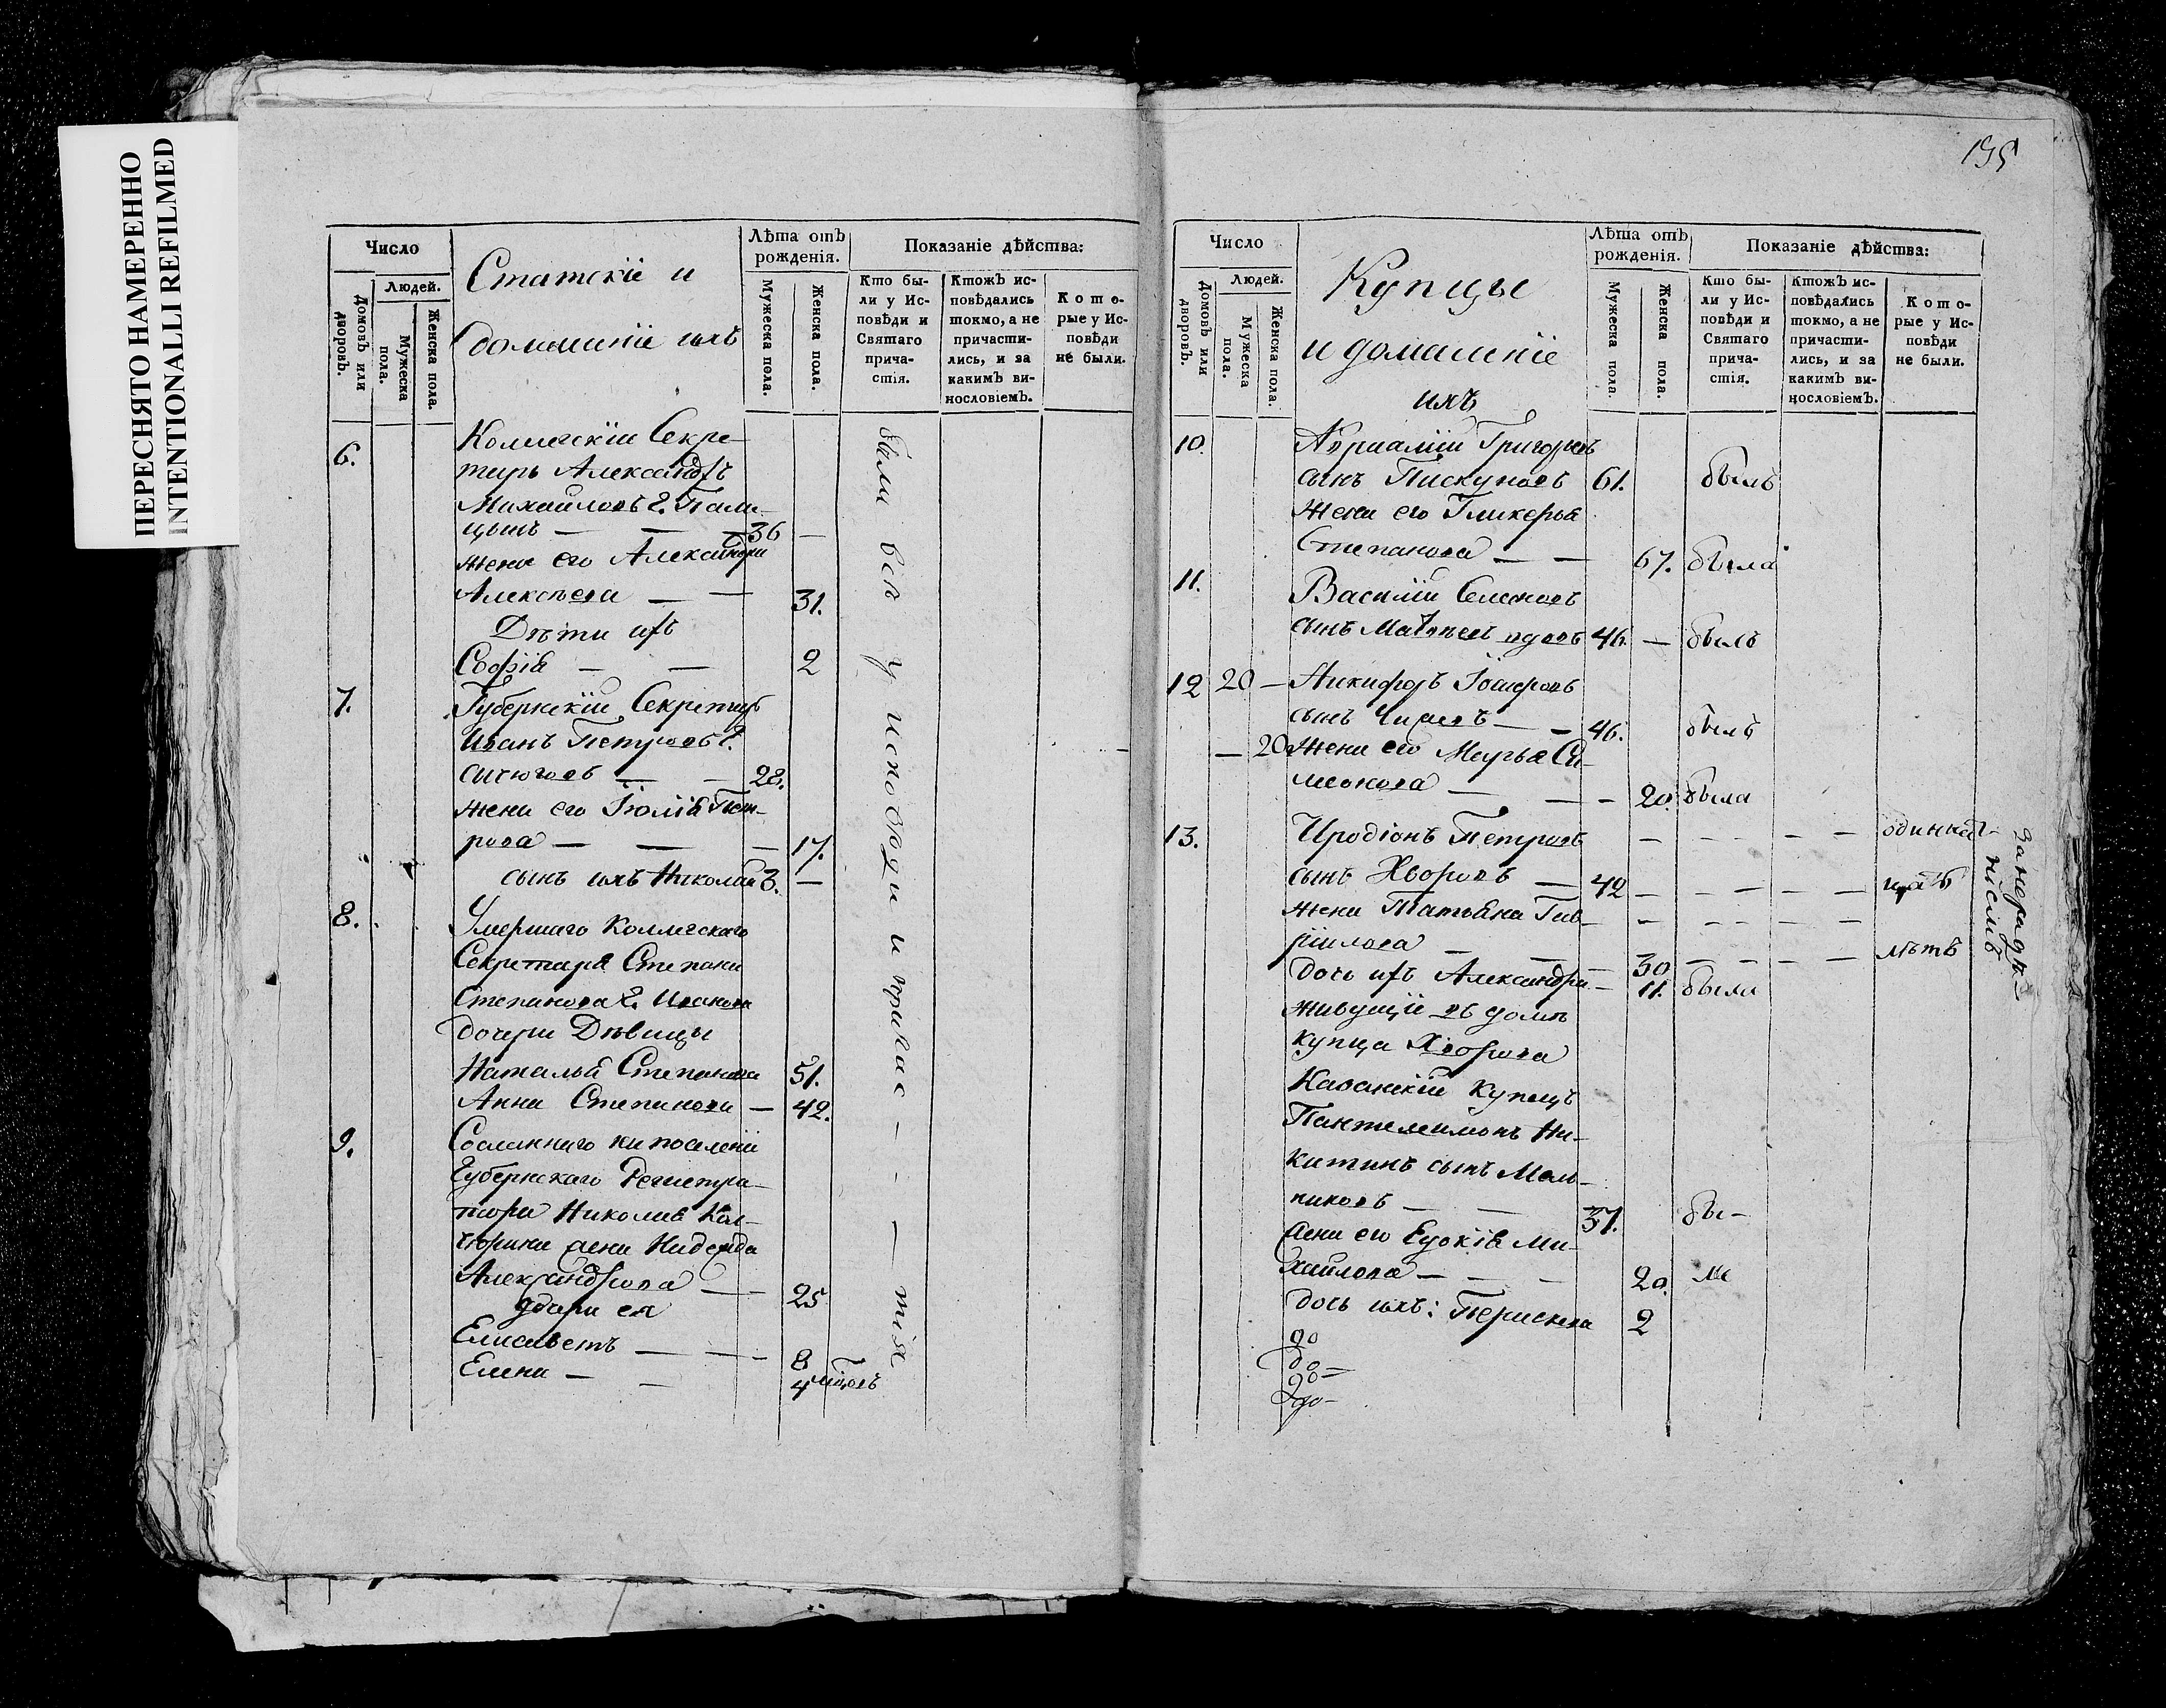 ПЕРЕСНЯТО НАМЕРЕННО
INTENTIONALLI REFILMED
Число
Людей.
Домовъ или дворовъ.
Мужеска пола.
Женска пола.
Статскіе и
домашніе ихъ
Лѣта отъ рожденія.
Мужеска пола.
Женска пола.
Показаніе дѣйства:
Кто были у Исповѣди и Святаго причастія.
Ктожъ исповѣдались токмо, а не причастились, и за какимъ винословіемъ.
Которые у Исповѣди не были.
6.
Коллегскій Секре-
тарь Александръ
Михайловъ г. Пали-
цынъ — — 36 —
жена его Александра
Алексѣева — — 31.
Дѣти ихъ
Софія — — 2
7. Губернскій Секретарь
Иванъ Петровъ г.
— — 28.
жена его Іюлія Пет-
рова — — — 17.
сынъ ихъ Николай 3. —
8. Умершаго Коллегскаго
Секретаря Степана
Степанова г. Иванова
дочери Дѣвицы
Наталья Степанова 51.
Анна Степанова — 42.
9. Сосланнаго на поселеніе
Губернскаго Регистра-
тора Николая
жена Надежда
Александрова — — 25
дочери ея
Елисаветъ — — 8
Елена — — 4
были всѣ у исповѣди и причас — — — тія
195
Число
Людей.
Домовъ или дворовъ.
Мужеска пола.
Женска пола.
Купцы
и домашніе
ихъ
Лѣта отъ рожденія.
Мужеска пола
Женска пола.
Показаніе дѣйства:
Кто были у Исповѣди и Святаго причастія.
Ктожъ исповѣдались токмо, а не причастились, и за какимъ винословіемъ.
Которые у Исповѣди не были.
10. Григорьевъ
сынъ Пискуновъ 61. былъ
жена его Гликерья
Степанова — — 67. была
11. Василій Семеновъ
сынъ Матвеевъ вдовъ 46. — былъ
12 20 — Никифоръ
сынъ — — 46. былъ
— 20 жена его Марья Си-
меонова — — — 20. была
13. Иродіонъ Петровъ — — — — — одиннад-
сынъ Хворовъ — 42 — — — — — цать
жена Татьяна Гав- — — — — —
ріилова — — — 30 — — — — лѣтъ
дочь ихъ Александра — 11. была
за нерадѣ-
ніемъ
живущіе въ домѣ
купца Хворова
Казанскій Купецъ
Пантелеимонъ Ни-
китинъ сынъ Мель-
никовъ — — 37. бы-
жена его Евдокія Ми-
хайлова — — — 20. ли
дочь ихъ: Параскева 2
до
до —
до —